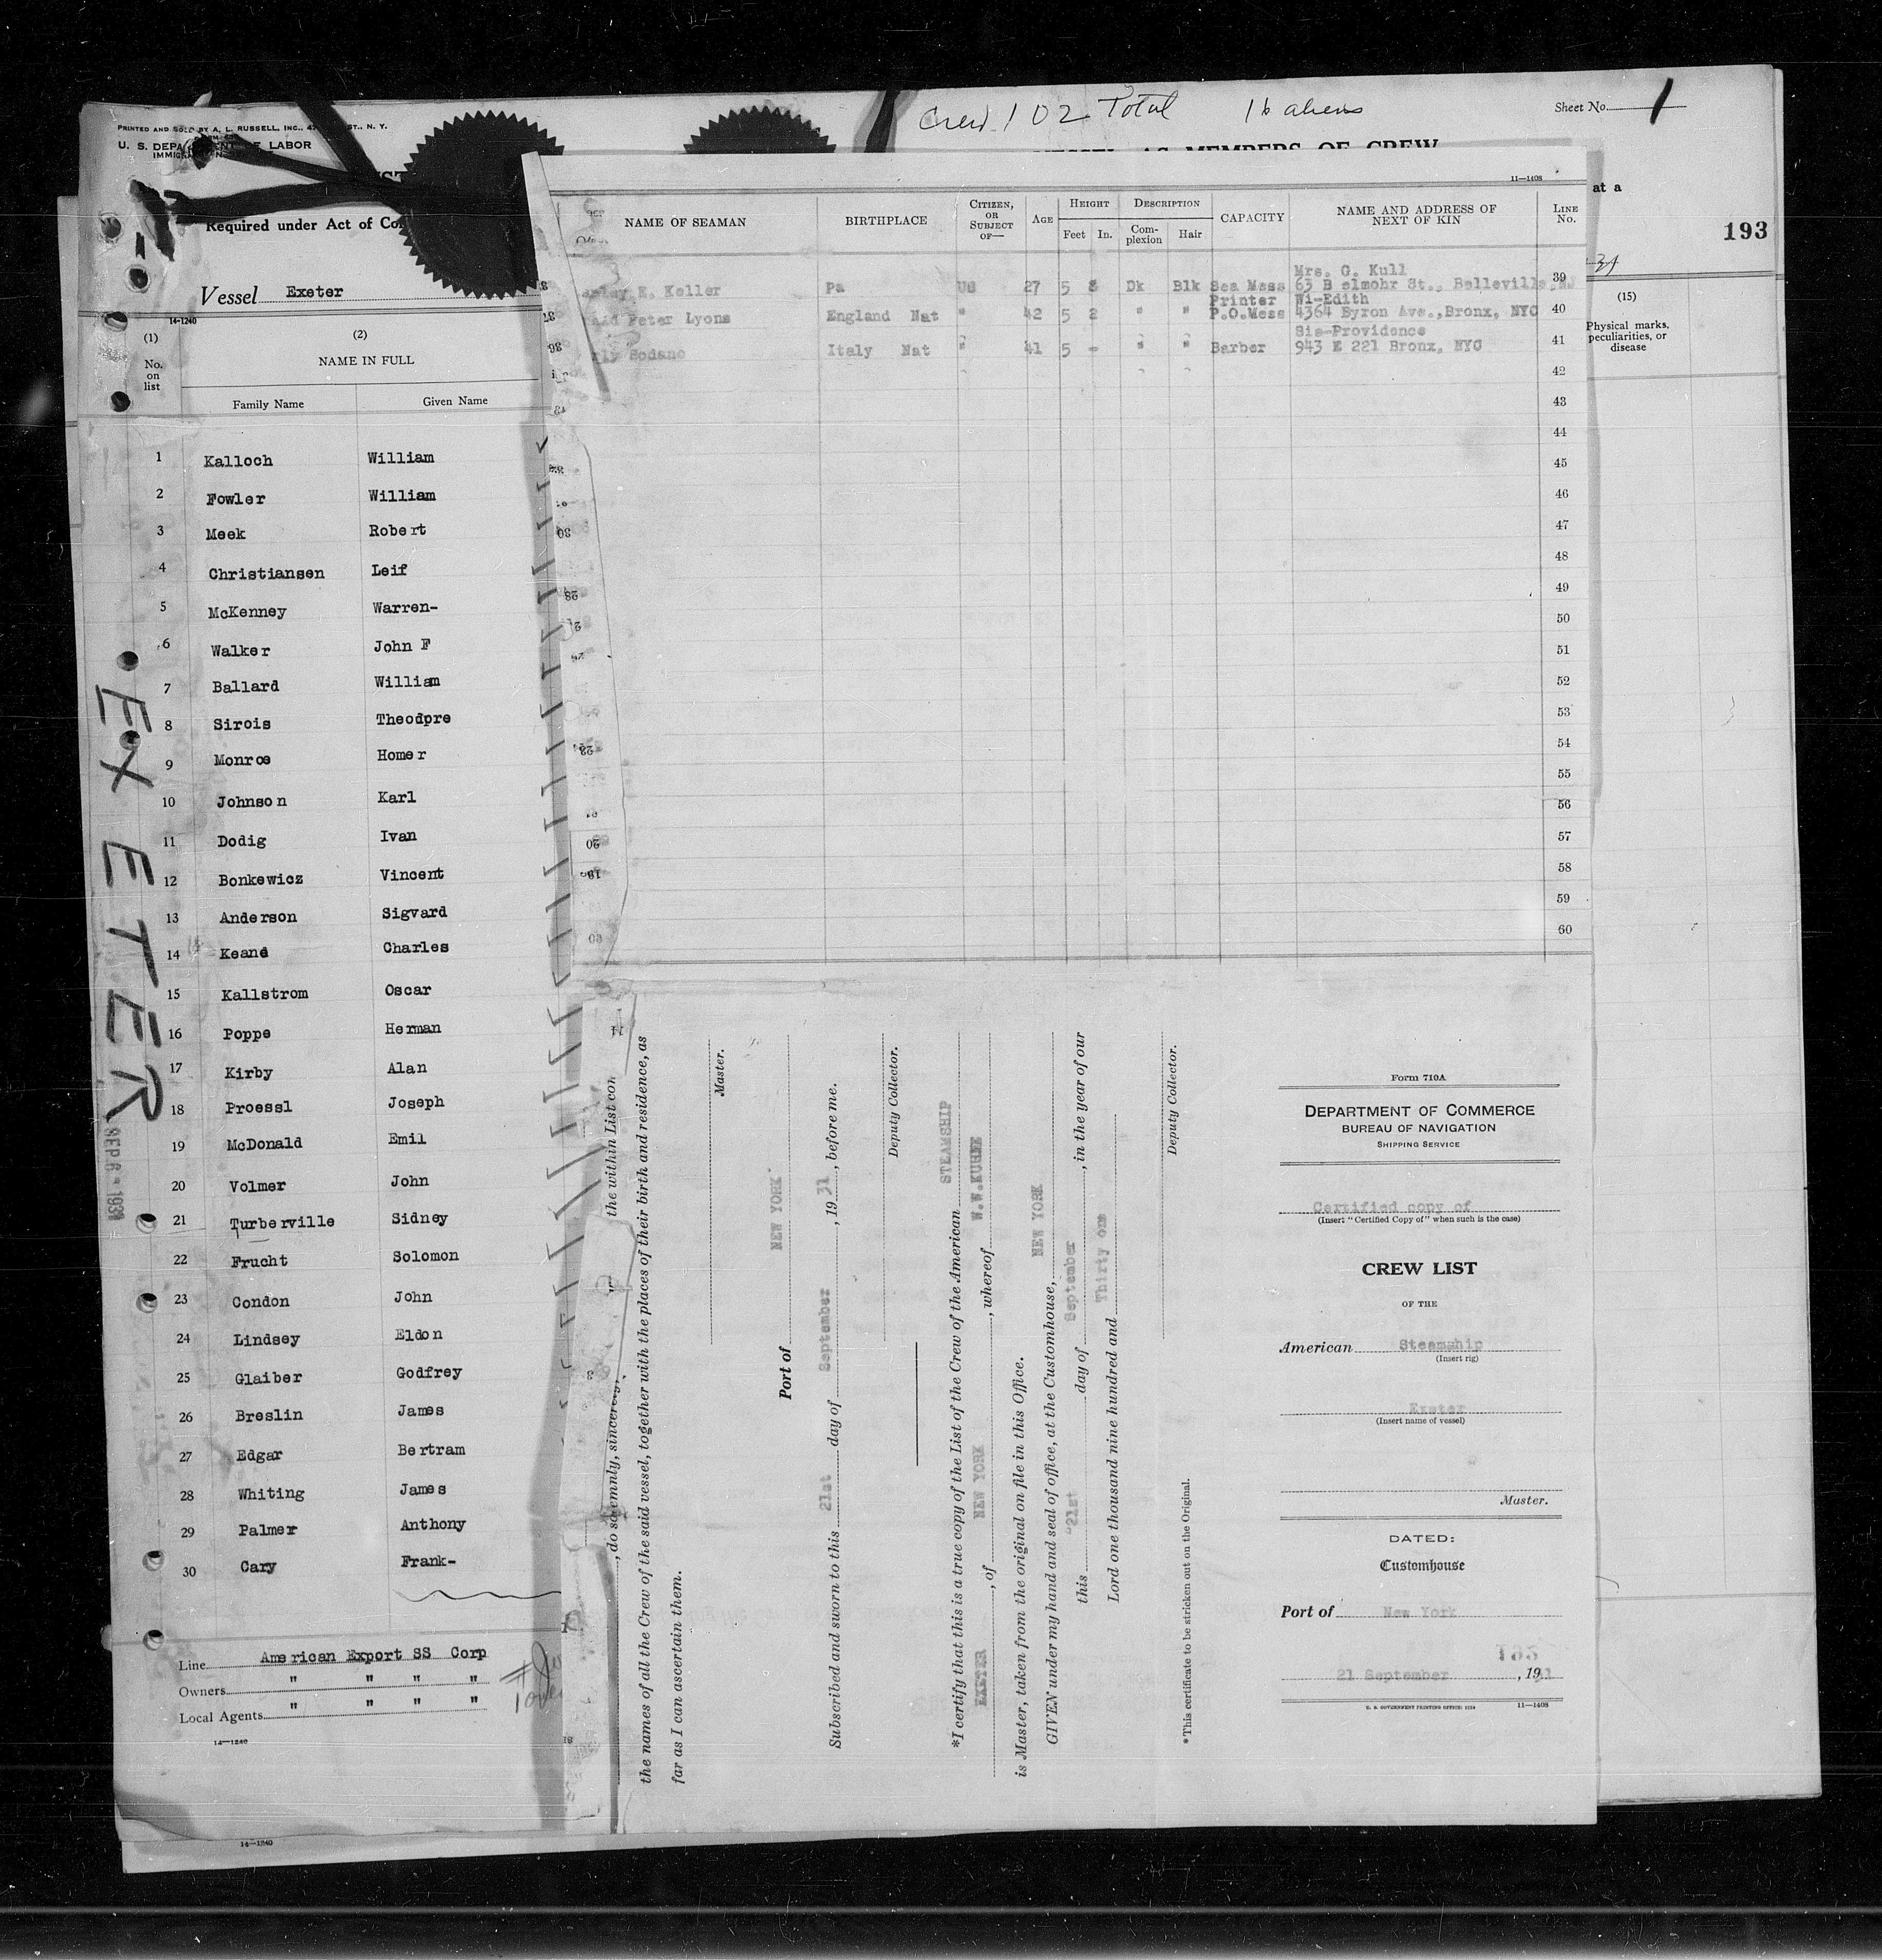 Crew 102 Total 16 aliens
Sheet No. 1
PRINTED AND SOLD BY A. L. RUSSELL, INC., ST., N. Y.
U. S. DEPARTMENT OF LABOR
Required under Act of Con
at a
193
Vessel Exeter
14-1240
(1) (2)
No. on list
NAME IN FULL
Family Name Given Name
(15)
Physical marks, peculiarities, or disease
1 Kalloch William
2 Fowler William
3 Meek Robert
4 Christiansen Leif
5 McKenney Warren-
6 Walker John F
7 Ballard William
8 Sirois Theodpre
9 Monroe Homer
10 Johnson Karl
11 Dodig Ivan
12 Bonkewicz Vincent
13 Anderson Sigvard
14 Keane Charles
15 Kallstrom Oscar
16 Poppe Herman
17 Kirby Alan
18 Proessl Joseph
19 McDonald Emil
20 Volmer John
21 Turberville Sidney
22 Frucht Solomon
23 Condon John
24 Lindsey Eldon
25 Glaiber Godfrey
26 Breslin James
27 Edgar Bertram
28 Whiting James
29 Palmer Anthony
30 Cary Frank-
Line American Export SS Corp
Owners " " " "
Local Agents " " " "
14-1240
14-1240
EXETER
SEP 1931
11-1408
NAME OF SEAMAN BIRTHPLACE CITIZEN, OR SUBJECT OF— AGE HEIGHT Feet In. DESCRIPTION Complexion Hair CAPACITY NAME AND ADDRESS OF NEXT OF KIN LINE No.
Mrs. G. Kull
E. Keller Pa US 27 5 8 Dk Blk Sea Mess 63 B elmohr St., Belleville, NJ 39
Printer Wi-Edith
Peter Lyons England Nat " 42 5 2 " " P.O.Mess 4364 Byron Ave., Bronx, NYC 40
Sis-Providence
Sodano Italy Nat " 41 5 - " " Barber 943 E 221 Bronx, NYC 41
42
43
44
45
46
47
48
49
50
51
52
53
54
55
56
57
58
59
60
the within List con
, do solemnly, sincerely,
the names of all the Crew of the said vessel, together with the places of their birth and residence, as
far as I can ascertain them.
Master.
Port of NEW YORK
Subscribed and sworn to this 21st day of September, 1931, before me.
Deputy Collector.
*I certify that this is a true copy of the List of the Crew of the American STEAMSHIP
EXETER, of NEW YORK, whereof W.W.KUHNE
is Master, taken from the original on file in this Office.
GIVEN under my hand and seal of office, at the Customhouse, NEW YORK
this 21st day of September, in the year of our
Lord one thousand nine hundred and Thirty one
Deputy Collector.
*This certificate to be stricken out on the Original.
Form 710A
DEPARTMENT OF COMMERCE
BUREAU OF NAVIGATION
SHIPPING SERVICE
Certified copy of
(Insert "Certified Copy of" when such is the case)
CREW LIST
OF THE
American Steamship
(Insert rig)
Exeter
(Insert name of vessel)
Master.
DATED:
Customhouse
Port of New York
21 September, 1931
11-1408